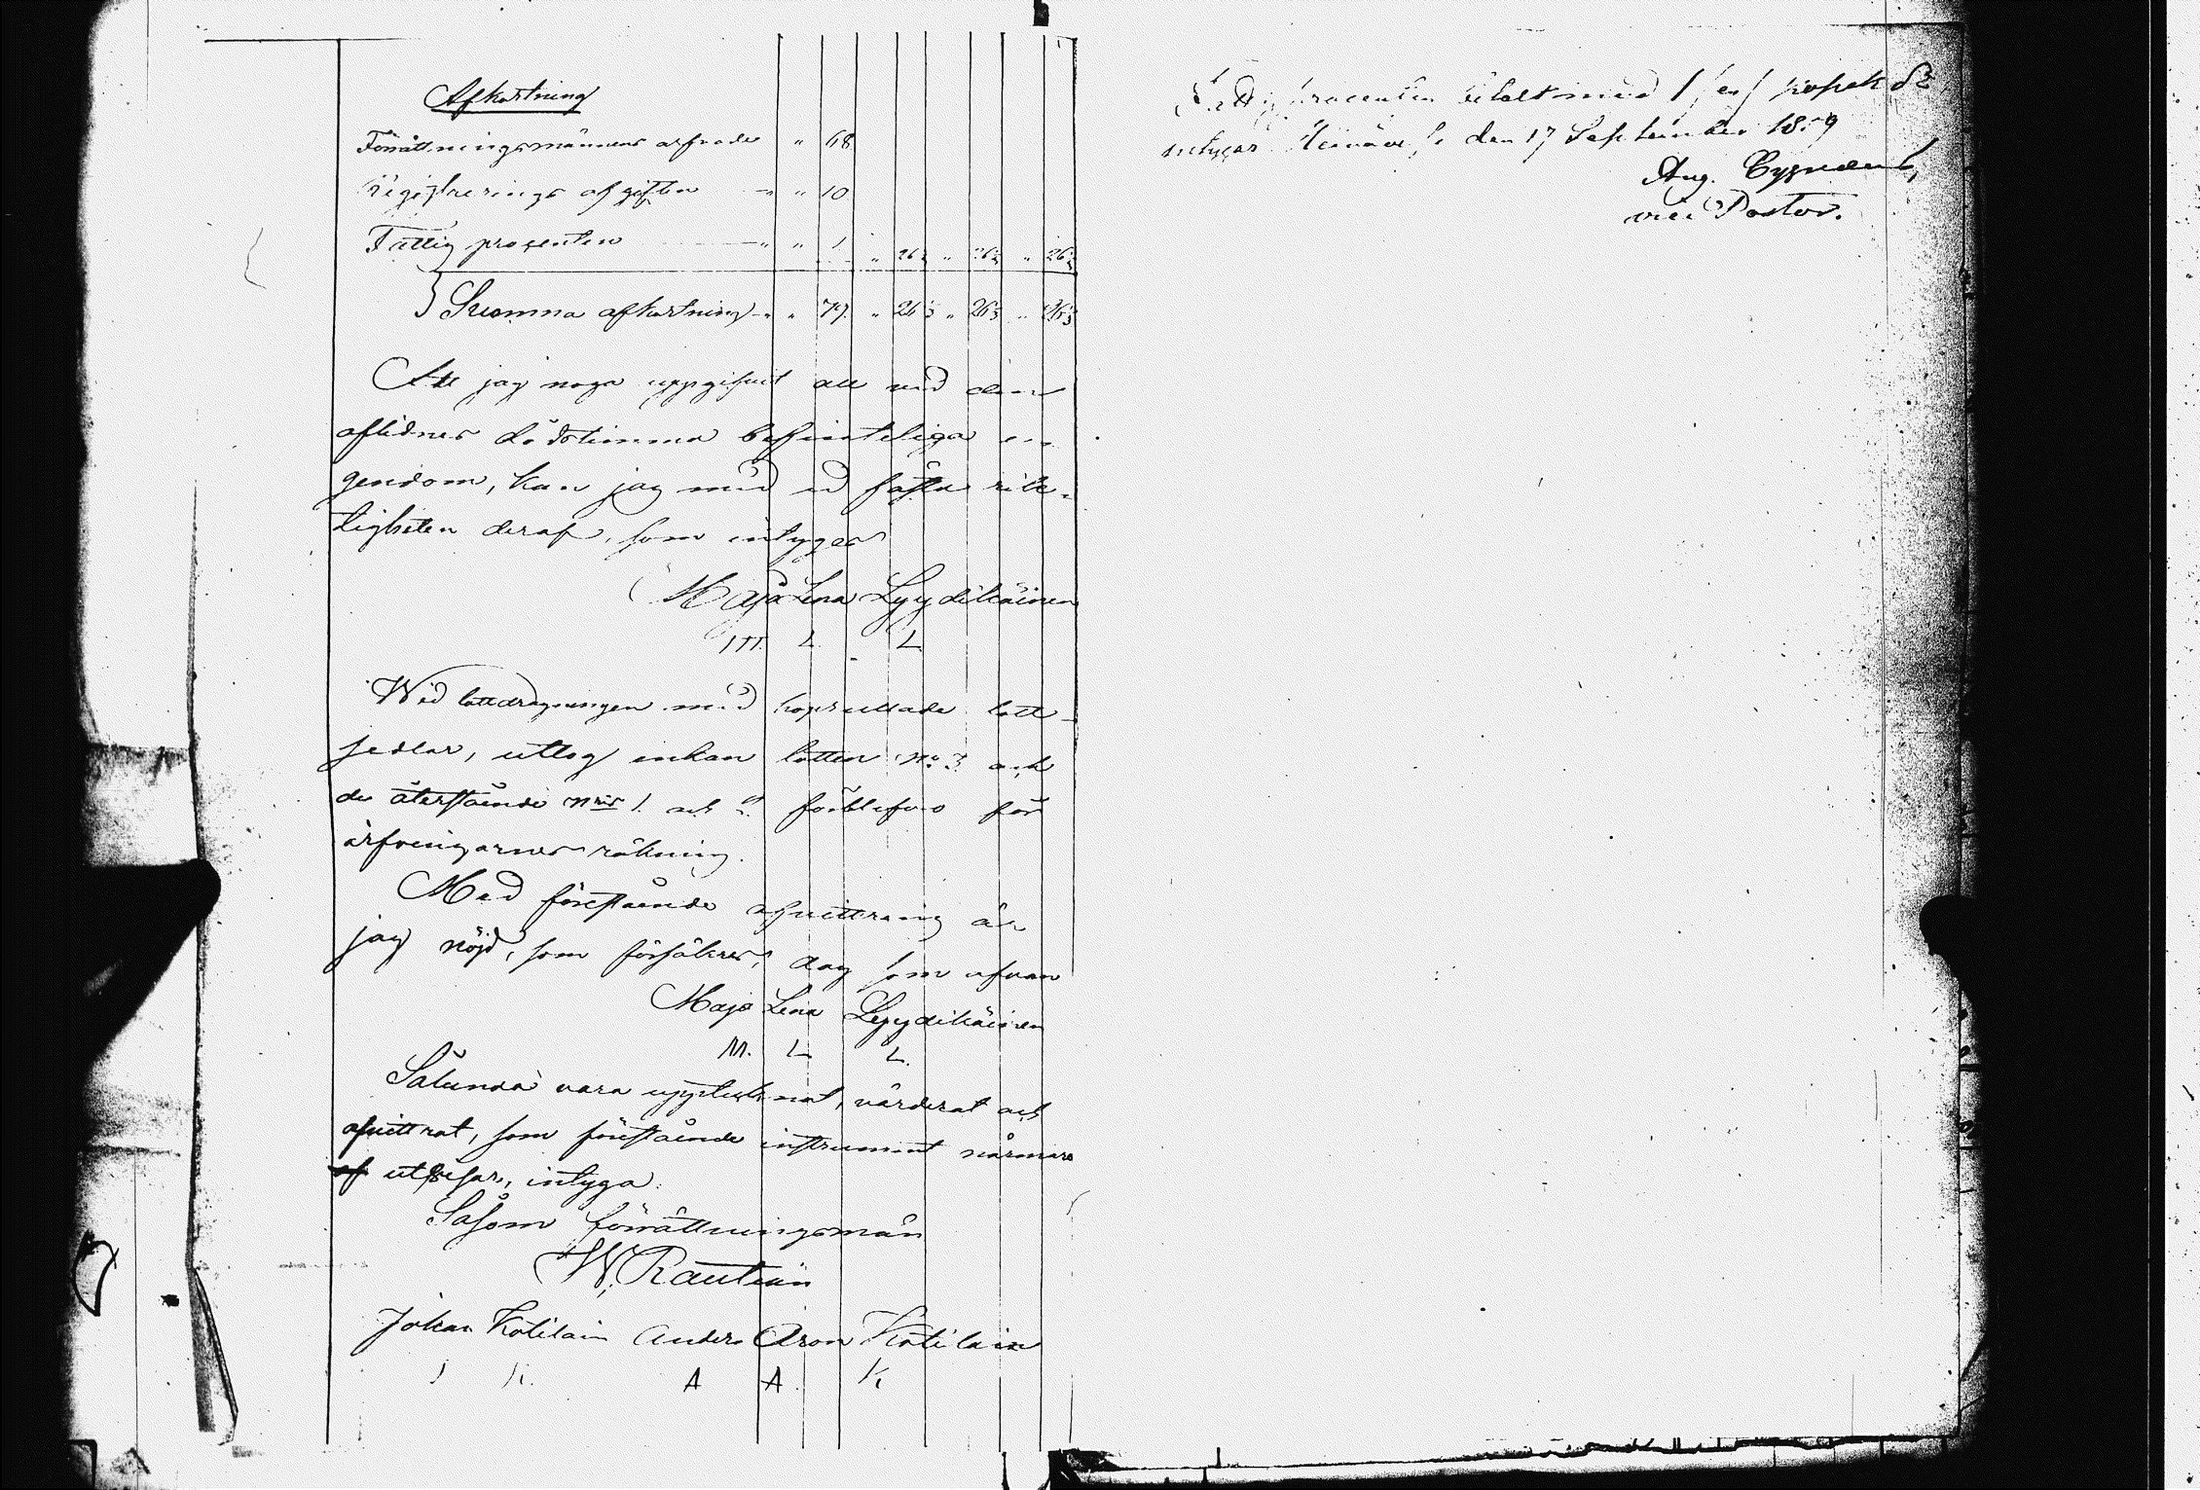 Afkortning
Förrättningsmännens arfvode " 68
Registrerings afgiften " " 10
Fattig procenten " " 1 " 26⅓ " 26⅓ " 26⅓
Summa afkortning " " 79. " 26⅓ " 26⅓ " 26⅓
Att jag noga uppgifvit all vid den
aflidnes dödstimma befinteliga e-
gendom, kan jag med ed fästa rik-
tigheten deraf, som intygas
Maja Lena Lyydikäinen
M. L. L.
Wid lottdragningen med hoprullade lott-
sedlar, uttog enkan lotten No 3 och
de återstående Nris 1. och 2. förblefvo för
arfvingarnes räkning.
Med förestående afvittring är
jag nöjd, som försäkras, dag som ofvan
Maja Lena Lyydikäinen
M. L. L.
Sålunda vara upptecknat, värderat och
afvittrat, som förestående instrument närmare
utvisar, intyga.
Såsom förrättningsmän
W. Rautiain
Johan Kotilain Anders Aron Kotilain
J K. A A. K
Fattig procenten betalt med 1 en kopek
intygar den 17 September 1859
Aug. Cygnaeus,
vice Pastor.